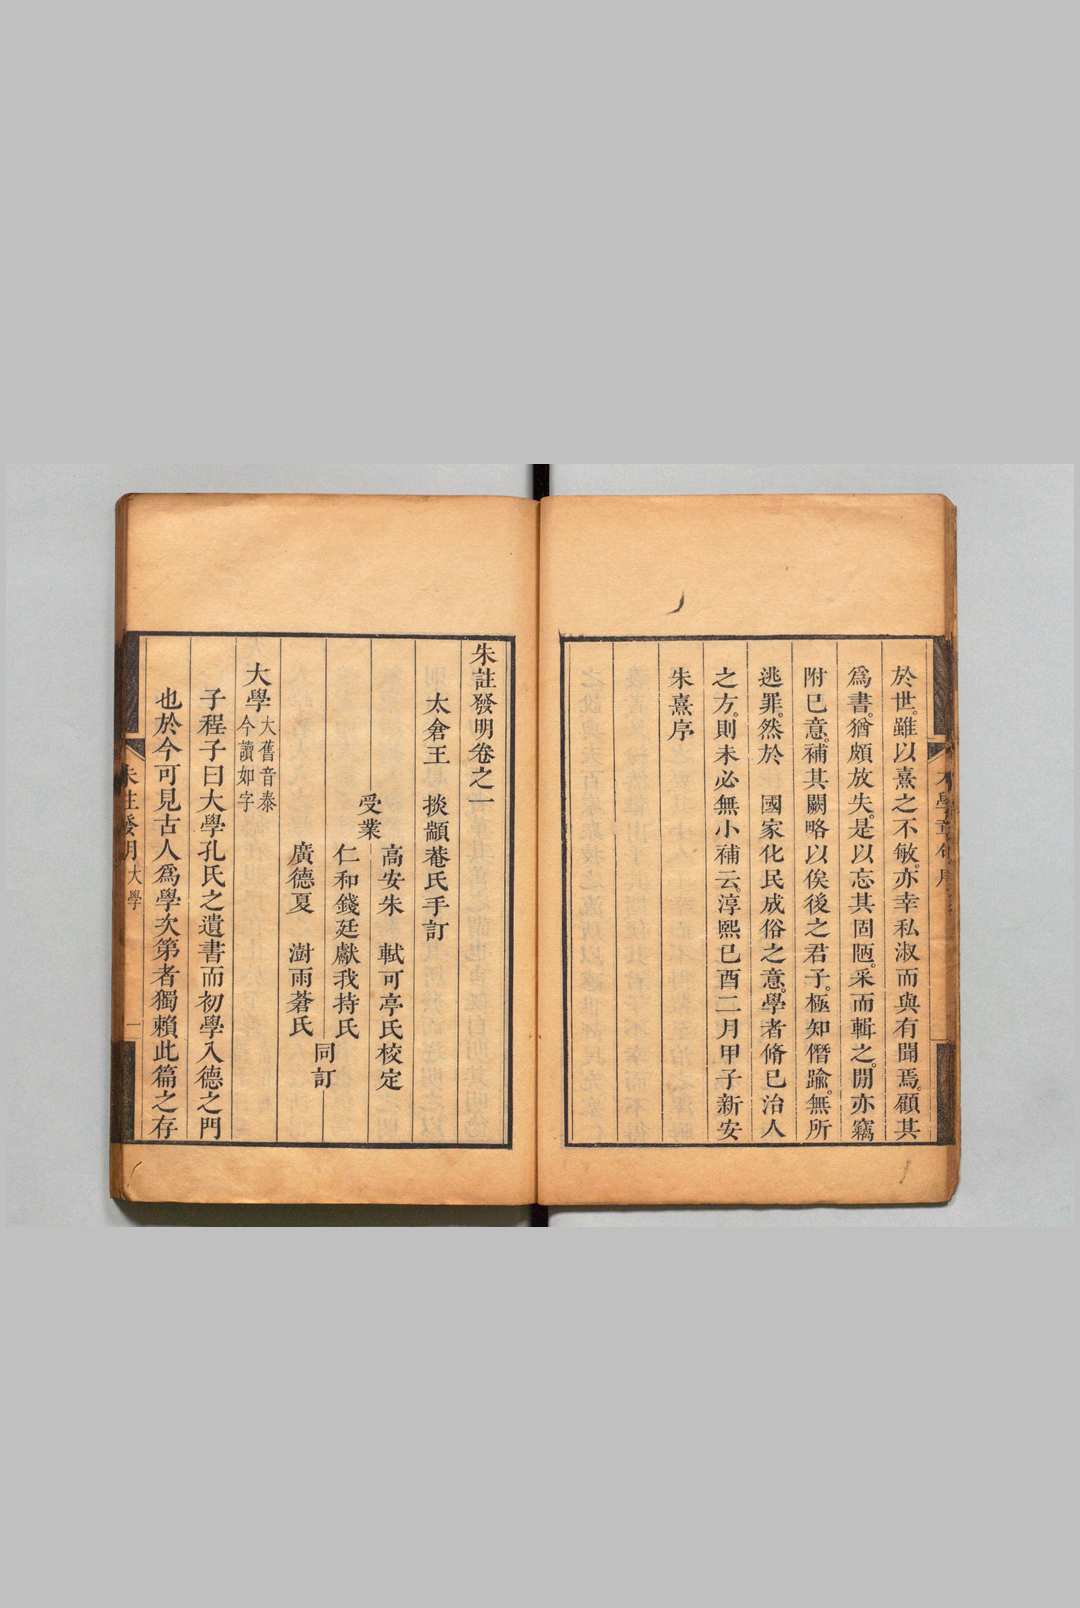 於世。雖以熹之不敏。亦幸私淑而與有聞焉。顧其
爲書。猶頗放失。是以忘其固陋。采而輯之。閒亦竊
附已意。補其闕略以俟後之君子。極知僭踰。無所
逃罪。然於　國家化民成俗之意。學者脩已治人
之方。則未必無小補云淳熙已酉二月甲子新安
朱熹序
朱註發明卷之一
太倉王　掞顓菴氏手訂
受業
高安朱　軾可亭氏校定
仁和錢廷獻我持氏
廣德夏　澍雨蒼氏
同訂
大學
大舊音泰
今讀如字
子程子曰大學孔氏之遺書而初學入德之門
也於今可見古人爲學次第者獨賴此篇之存
朱註發明
大學
一